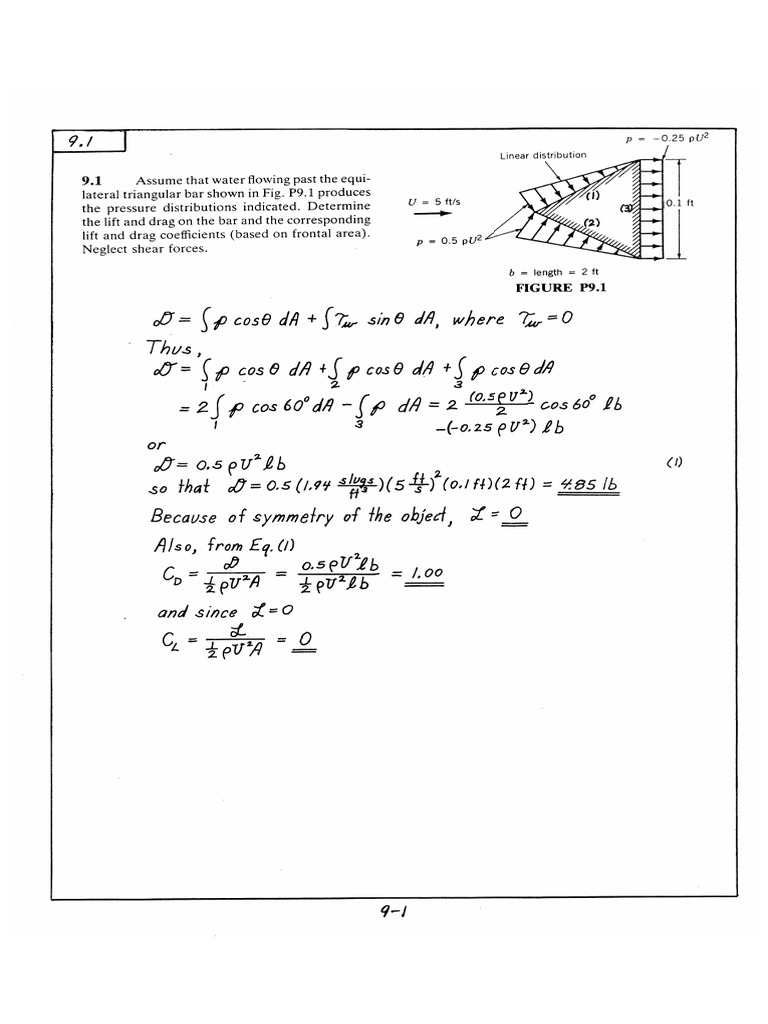 9.1
9.1 Assume that water flowing past the equi-
lateral triangular bar shown in Fig. P9.1 produces
the pressure distributions indicated. Determine
the lift and drag on the bar and the corresponding
lift and drag coefficients (based on frontal area).
Neglect shear forces.
p = −0.25 ρU²
Linear distribution
U = 5 ft/s
(1)
(3)
0.1 ft
(2)
p = 0.5 ρU²
b = length = 2 ft
FIGURE P9.1
𝒟 = ∫ p cosθ dA + ∫ τ_w sin θ dA, where τ_w = 0
Thus,
𝒟 = ∫₁ p cos θ dA + ∫₂ p cos θ dA + ∫₃ p cos θ dA
= 2 ∫₁ p cos 60° dA − ∫₃ p dA = 2 (0.5ρU²)/2 cos 60° ℓb
−(−0.25 ρU²) ℓb
or
𝒟 = 0.5 ρU² ℓb (1)
so that 𝒟 = 0.5 (1.94 slugs/ft³)(5 ft/s)² (0.1 ft)(2 ft) = 4.85 lb
Because of symmetry of the object, ℒ = 0
Also, from Eq. (1)
C_D = 𝒟/(½ ρU²A) = 0.5 ρU²ℓb/(½ ρU²ℓb) = 1.00
and since ℒ = 0
C_L = ℒ/(½ ρU²A) = 0
9-1